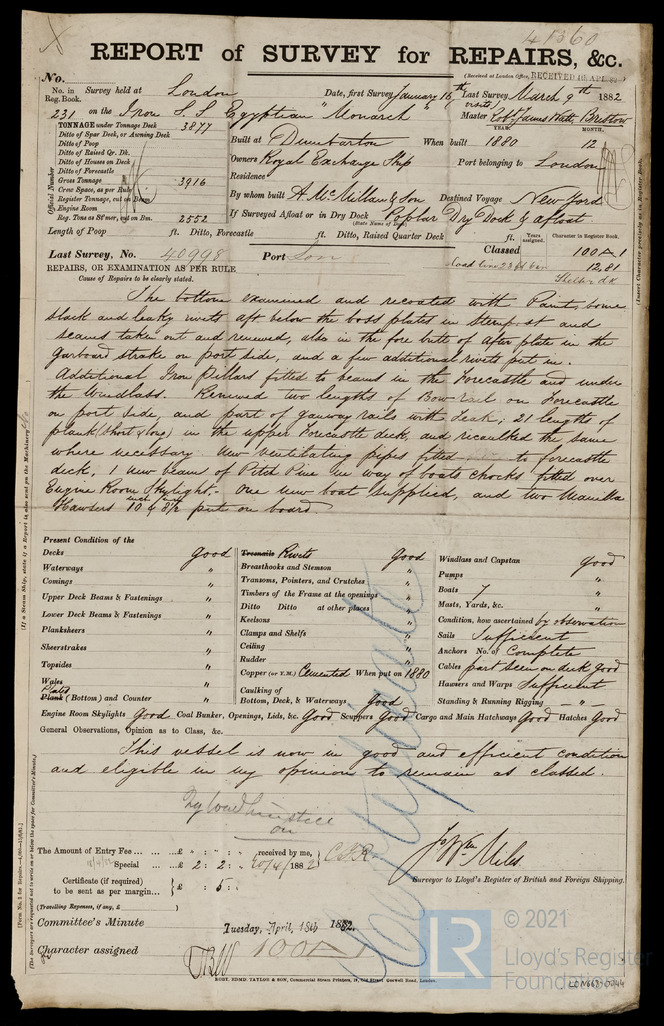 41360
REPORT of SURVEY for REPAIRS, &c.
(Received at London Office, RECEIVED 18 APL 82)
No.
No. in Reg. Book.
Survey held at London
Date, first Survey January 16th
Last Survey March 9th 1882
231 on the Iron S.S. Egyptian "Monarch"
Master Robt James Watt Bristow
TONNAGE under Tonnage Deck 3877
Ditto of Spar Deck, or Awning Deck
Ditto of Poop
Ditto of Raised Qr. Dk.
Ditto of Houses on Deck
Ditto of Forecastle
Gross Tonnage 3916
Crew Space, as per Rule
Register Tonnage, cut on Beam
Engine Room
Reg. Tons as St'mer, cut on Bm. 2552
Official Number
Built at Dumbarton When built YEAR. 1880 MONTH. 12
Owners Royal Exchange Ship
Port belonging to London
Residence
By whom built A. McMillan & Son Destined Voyage New York
If Surveyed Afloat or in Dry Dock Poplar Dry Dock & afloat
(State Name of Dock.)
Length of Poop ft. Ditto, Forecastle ft. Ditto, Raised Quarter Deck ft.
Years assigned. Character in Register Book.
Last Survey, No. 40998 Port Lon
Classed 100 A 1
12,81
REPAIRS, OR EXAMINATION AS PER RULE
Cause of Repairs to be clearly stated.
The bottom examined and recoated with Paint, some
slack and leaky rivets aft below the boss plates in sternpost and
seams taken out and renewed, also in the fore butt of after plate in the
Garboard strake on port side, and a few additional rivets put in.
Additional Iron Pillars fitted to beams in the Forecastle and under
the Windlass. Renewed two lengths of Bow rail on Forecastle
on port side, and part of gangway rails with Teak; 21 lengths of
plank (short & long) in the upper Forecastle deck, and recaulked the same
where necessary. New ventilating pipes fitted to forecastle
deck, 1 new beam of Pitch Pine in way of boats chocks fitted over
Engine Room Skylight,- One new boat supplied, and two Manilla
Hawsers 10 & 8½ put on board.
Present Condition of the
Decks good
Waterways "
Comings "
Upper Deck Beams & Fastenings "
Lower Deck Beams & Fastenings "
Planksheers "
Sheerstrakes "
Topsides "
Wales "
Plates
Plank (Bottom) and Counter "
Treenails Rivets good
Breasthooks and Stemson "
Transoms, Pointers, and Crutches "
Timbers of the Frame at the openings "
Ditto Ditto at other places "
Keelsons "
Clamps and Shelfs "
Ceiling "
Rudder "
Copper (or Y.M.) Cemented When put on 1880
Caulking of Bottom, Deck, & Waterways good
Windlass and Capstan good
Pumps "
Boats 7 "
Masts, Yards, &c. "
Condition, how ascertained by observation
Sails Sufficient
Anchors No. of Complete
Cables part seen on deck good
Hawsers and Warps Sufficient
Standing & Running Rigging — " —
Engine Room Skylights Good Coal Bunker, Openings, Lids, &c. Good Scuppers Good Cargo and Main Hatchways Good Hatches Good
General Observations, Opinion as to Class, &c.
This vessel is now in good and efficient condition
and eligible in my opinion to remain as classed.
The Amount of Entry Fee ... £ " : " : " received by me,
Special ... £ 2 : 2 : " 20/4/1882
Certificate (if required) to be sent as per margin... £ : 5 :
(Travelling Expenses, if any, £ )
Surveyor to Lloyd's Register of British and Foreign Shipping.
Committee's Minute Tuesday, April 18th 1882.
Character assigned 100 A 1
ROBT. EDMD. TAYLOR & SON, Commercial Steam Printers, 19, Old Street Goswell Road, London.
LR © 2021
Lloyd's Register
Foundation
LDN663-0244